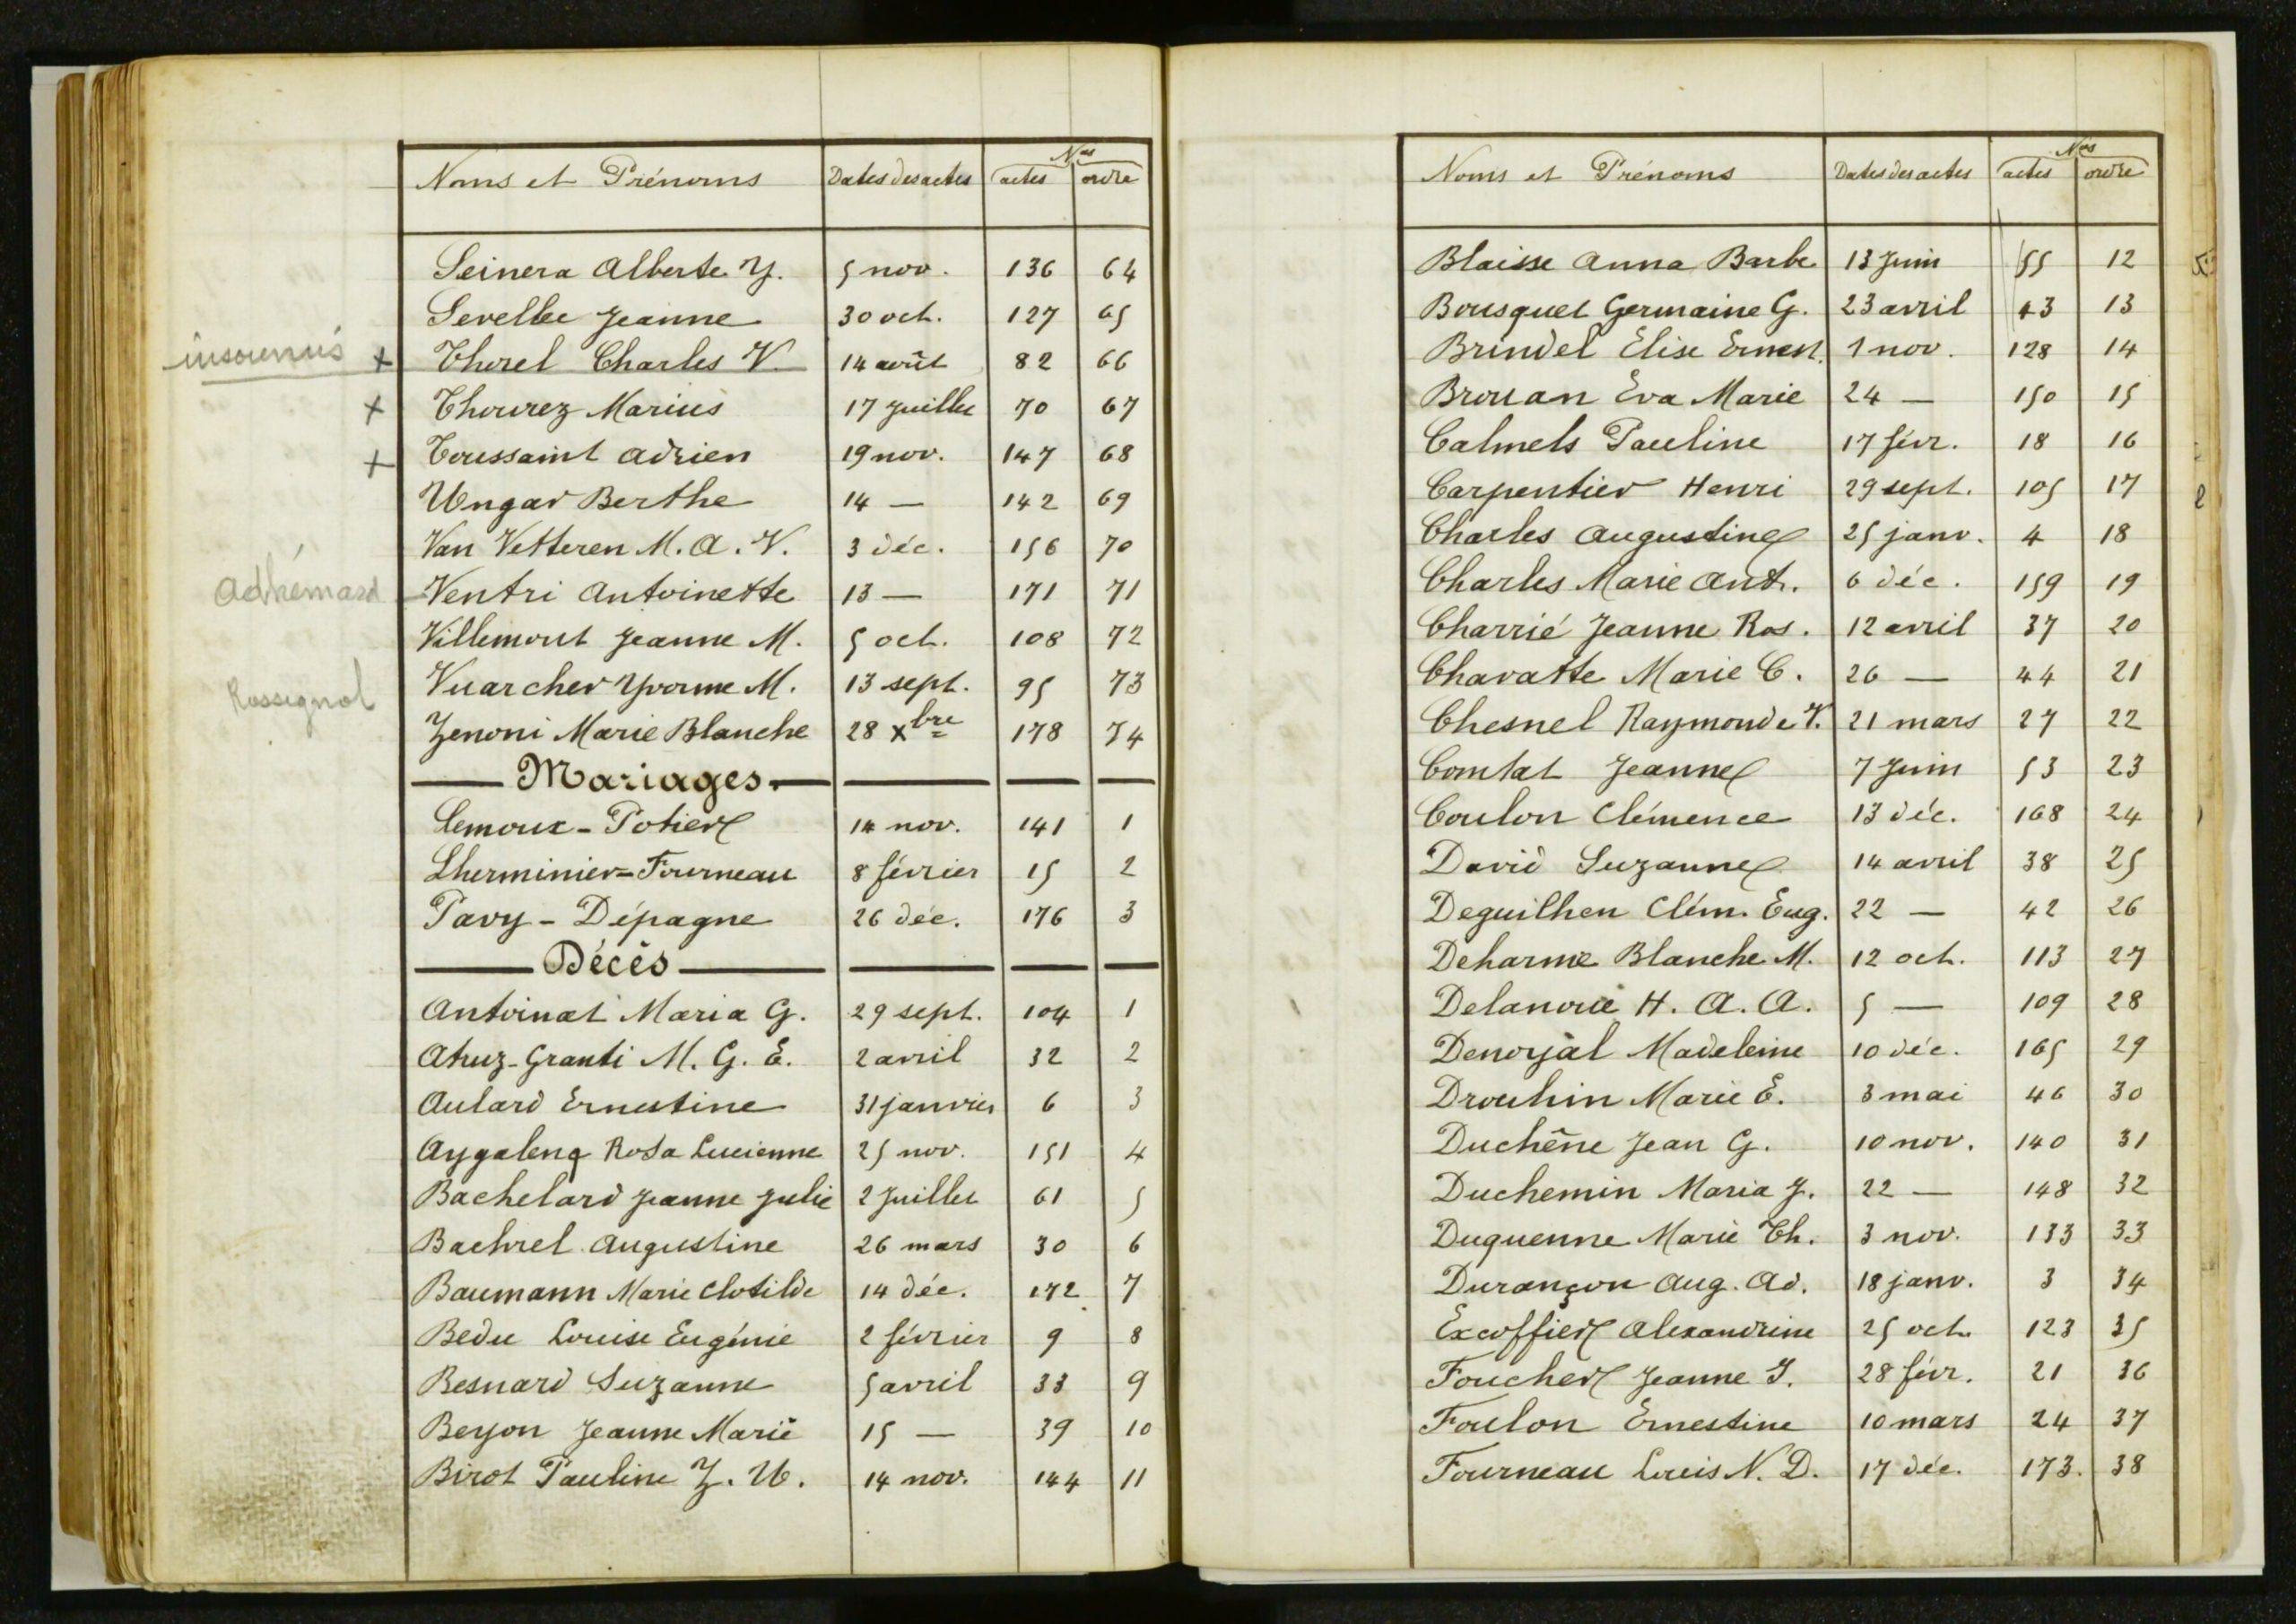 Noms et Prénoms Dates des actes Nos actes ordre
Seinera Alberte Y. 5 nov. 136 64
Sevellec Jeanne 30 oct. 127 65
insoumis x Thorel Charles V. 14 août 82 66
x Thourez Marius 17 Juillet 70 67
x Toussaint Adrien 19 nov. 147 68
Ungar Berthe 14 — 142 69
Van Vetteren M. A. V. 3 déc. 156 70
Adhémard Ventri Antoinette 13 — 171 71
Villemont Jeanne M. 5 oct. 108 72
Rossignol Vuarcher Yvonne M. 13 sept. 95 73
Zenoni Marie Blanche 28 Xbre 178 74
— Mariages. —
Lemoux - Potier 14 nov. 141 1
Lherminier - Fourneau 8 février 15 2
Pavy - Dépagne 26 déc. 176 3
— Décès —
Antoinat Maria G. 29 sept. 104 1
Atruz-Granti M. G. E. 2 avril 32 2
Aulard Ernestine 31 janvier 6 3
Aygaleng Rosa Lucienne 25 nov. 151 4
Bachelard Jeanne Julie 2 Juillet 61 5
Bachrel Augustine 26 mars 30 6
Baumann Marie Clotilde 14 déc. 172 7
Bedu Louise Eugénie 2 février 9 8
Besnard Suzanne 5 avril 33 9
Beyon Jeanne Marie 15 — 39 10
Birot Pauline Z. U. 14 nov. 144 11
Noms et Prénoms Dates des actes Nos actes ordre
Blaisse Anna Barbe 13 Juin 55 12
Bousquet Germaine G. 23 avril 43 13
Brindel Elise Ernest. 1 nov. 128 14
Brouan Eva Marie 24 — 150 15
Calmels Pauline 17 févr. 18 16
Carpentier Henri 29 sept. 105 17
Charles Augustine 25 janv. 4 18
Charles Marie Ant. 6 déc. 159 19
Charrié Jeanne Ros. 12 avril 37 20
Chavatte Marie C. 26 — 44 21
Chesnel Raymonde V. 21 mars 27 22
Comtat Jeanne 7 Juin 53 23
Coulon Clémence 13 déc. 168 24
David Suzanne 14 avril 38 25
Deguilhen Clém. Eug. 22 — 42 26
Deharme Blanche M. 12 oct. 113 27
Delanoue H. A. A. 5 — 109 28
Denoyal Madeleine 10 déc. 165 29
Drouhin Marie E. 3 mai 46 30
Duchêne Jean G. 10 nov. 140 31
Duchemin Maria J. 22 — 148 32
Duquenne Marie Th. 3 nov. 133 33
Durançon Aug. Ad. 18 janv. 3 34
Excoffier Alexandrine 25 oct. 123 35
Foucher Jeanne J. 28 févr. 21 36
Foulon Ernestine 10 mars 24 37
Fourneau Louis N. D. 17 déc. 173. 38